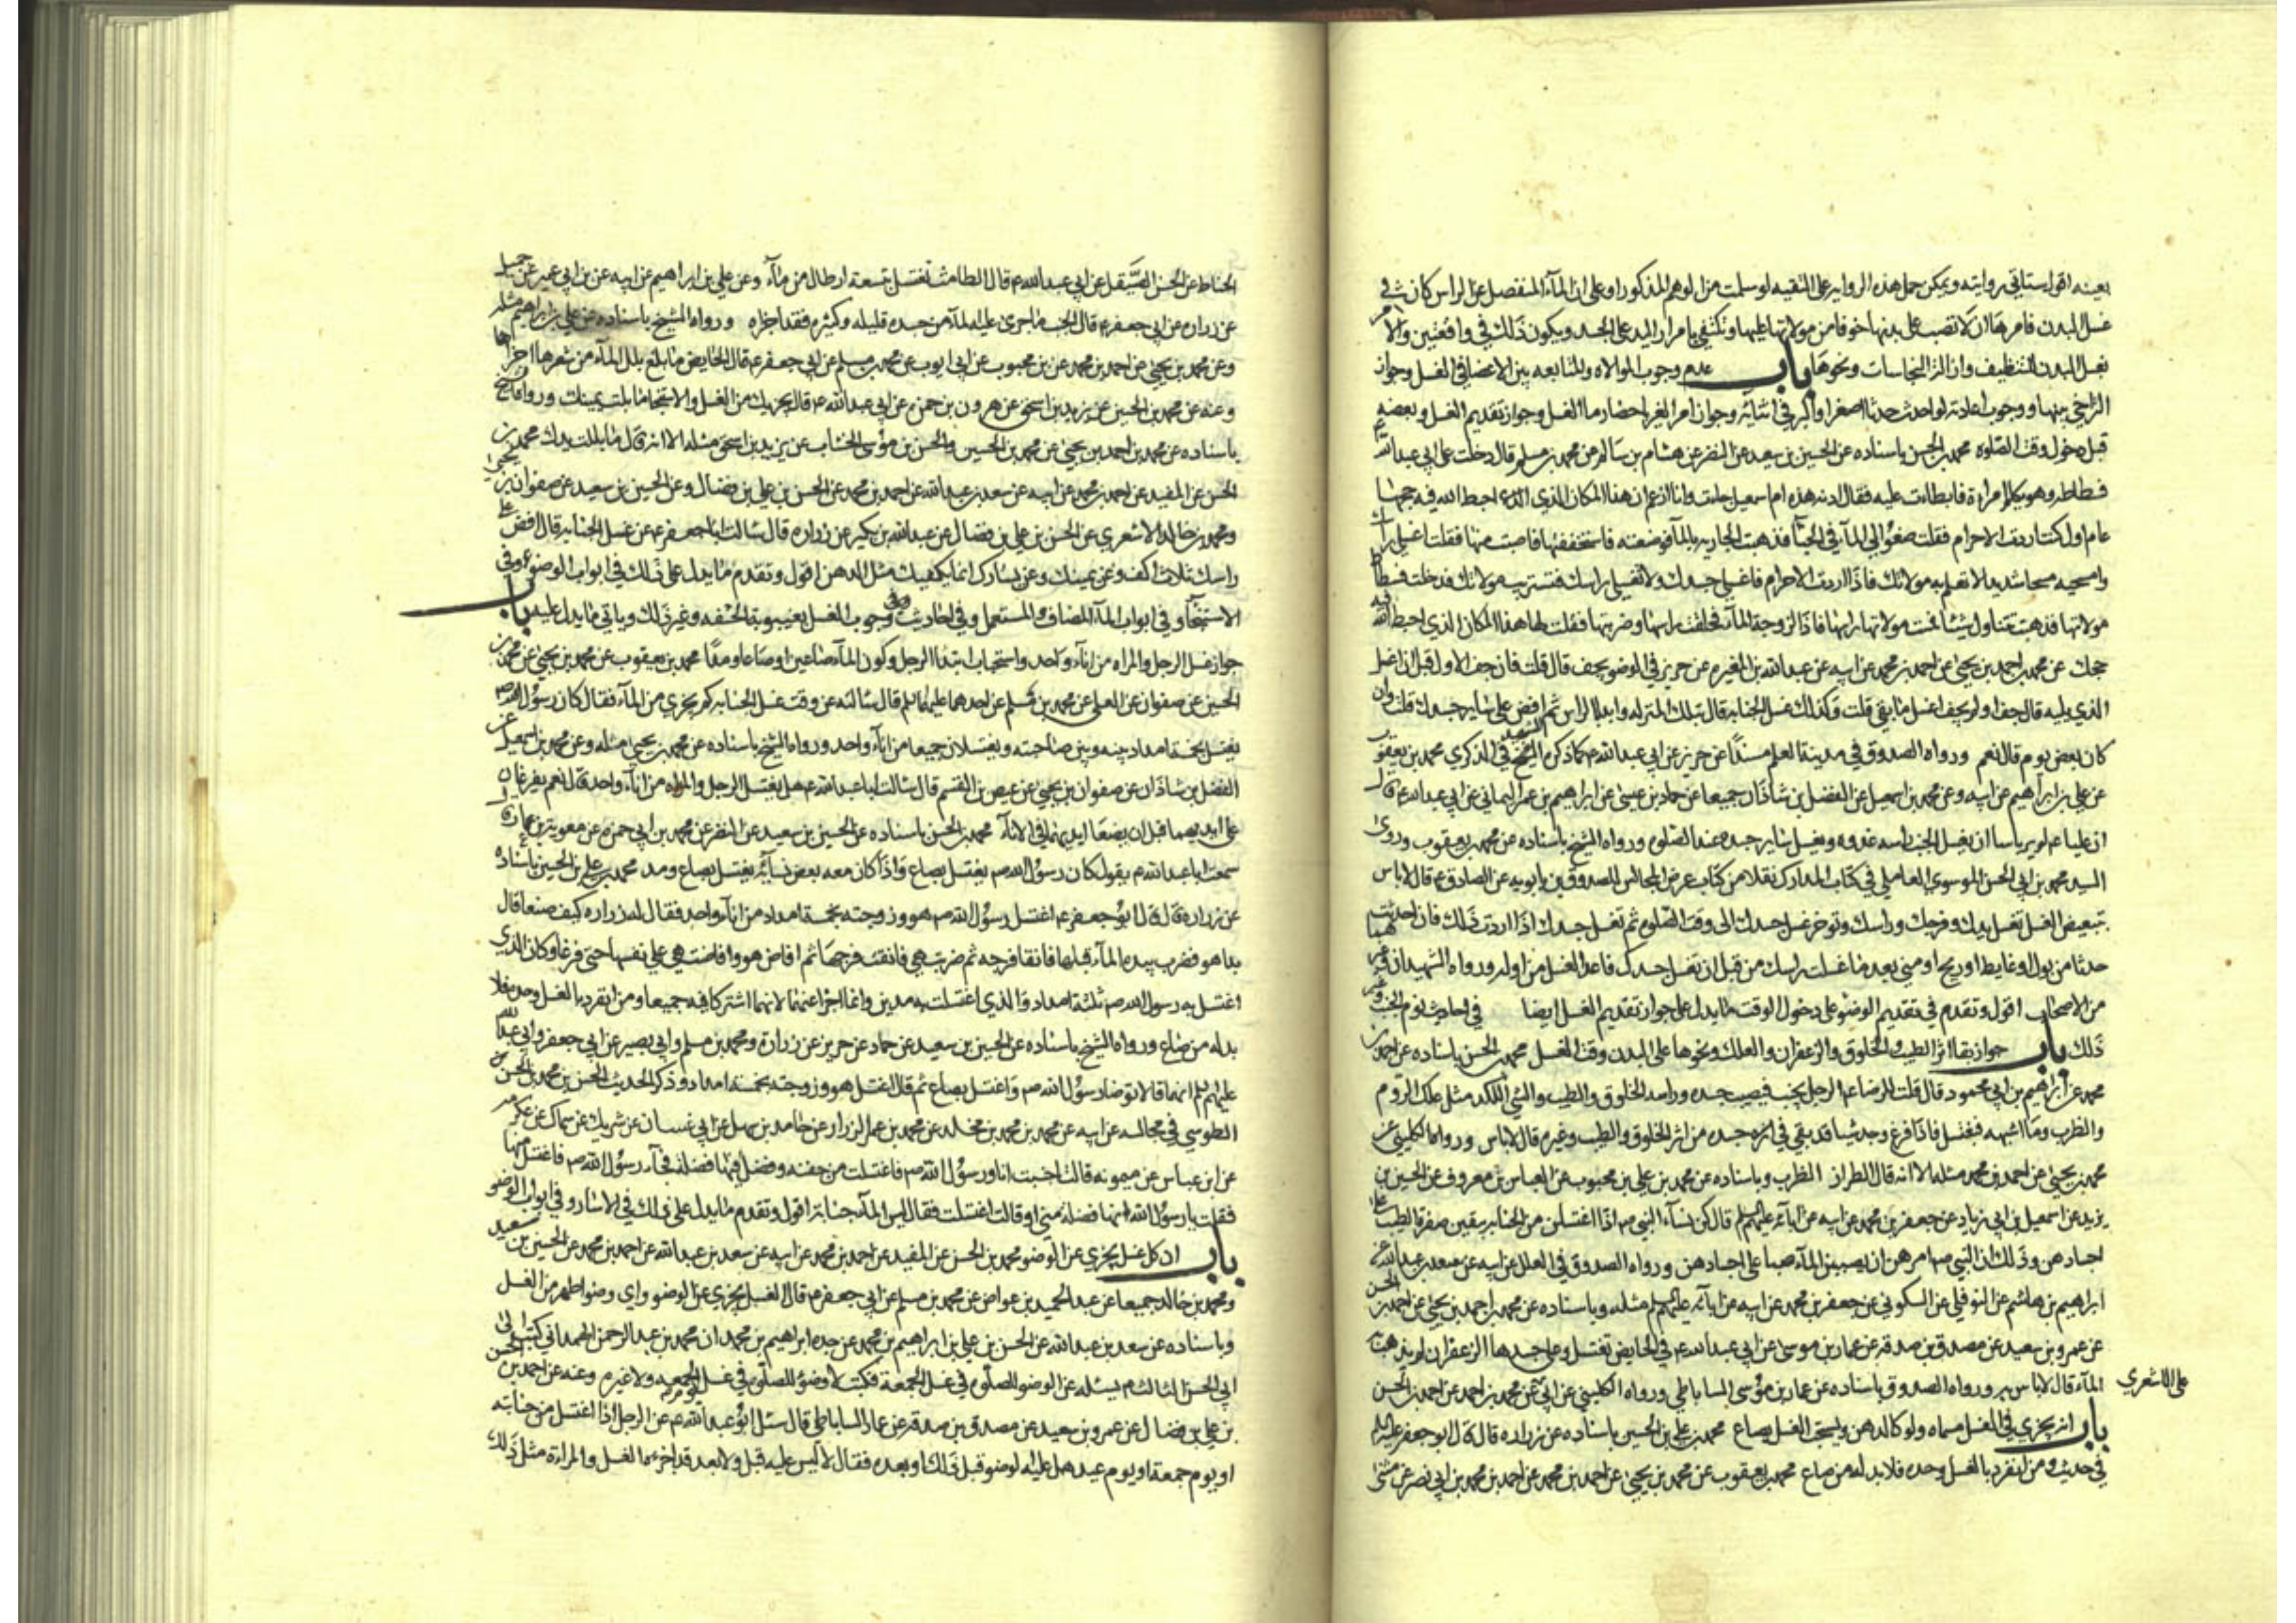 بعينه اقول ستاتي روايته ويمكن حمل هذه الرواية على التقيه لو سلمت من الوهم المذكور او على ان المآء المنفصل عن الراس كان في
غسل البدن فامرها ان لا تصب على بدنها خوفا من مولاتها عليها وتكتفي بامرار اليد على الجسد ويكون ذلك في واقعتين والامر
بغسل البدن للتنظيف وازالة النجاسات ونحوها باب عدم وجوب الموالاه والمتابعه بين الاعضا في الغسل وجواز
التراخي بينها ووجوب اعادته لو احدث حدثا اصغر او اكبر في اثنائه وجواز امر الغير باحضار ما الغسل وجواز تقديم الغسل وبعضه
قبل دخول وقت الصلوه محمد بن الحسن باسناده عن الحسين بن سعيد عن النضر عن هشام بن سالم عن محمد بن مسلم قال دخلت على ابي عبد الله ع
فسطاطه وهو يكلم امراة فابطات عليه فقال ادنه هذه ام اسمعيل جاءت وانا ازعم ان هذا المكان الذي احبط الله فيه حجها
عام اول كنت اردت الاحرام فقلت ضعوا لي المآء في الخبآ فذهبت الجاريه بالمآ فوضعته فاستخففتها فاصبت منها فقلت اغسلي راسك
وامسحيه مسحا شديدا لا تعلم به مولاتك فاذا اردت الاحرام فاغسلي جسدك ولا تغسلي راسك فتستريب مولاتك فدخلت فسطاط
مولاتها فذهبت تتناول شيئا فمست مولاتها راسها فاذا لزوجة المآء فحلقت راسها وضربتها فقلت لها هذا المكان الذي احبط الله فيه
حجك عن محمد بن احمد بن يحيى عن احمد بن محمد عن ابيه عن عبد الله بن المغيره عن حريز في الوضو يجف قال قلت فان جف الاول قبل ان اغسل
الذي يليه قال جف او لم يجف اغسل ما بقي قلت وكذلك غسل الجنابه قال بتلك المنزله وابدا بالراس ثم افض على ساير جسدك قلت وان
كان بعض يوم قال نعم ورواه الصدوق في مدينة العلم مسندا عن حريز عن ابي عبد الله ع كما ذكره الشهيد في الذكرى محمد بن يعقوب
عن علي بن ابراهيم عن ابيه وعن محمد بن اسمعيل عن الفضل بن شاذان جميعا عن حماد بن عيسى عن ابراهيم بن عمر اليماني عن ابي عبد الله ع قال
ان عليا ع لم ير باسا ان يغسل الجنب راسه غدوه ويغسل ساير جسده عند الصلوه ورواه الشيخ باسناده عن محمد بن يعقوب وروى
السيد محمد بن ابي الحسن الموسوي العاملي في كتاب المدارك نقلا من كتاب عرض المجالس للصدوق بن بابويه عن الصادق ع قال لا باس
بتبعيض الغسل تغسل يدك وفرجك وراسك وتوخر غسل جسدك الى وقت الصلوه ثم تغسل جسدك اذا اردت ذلك فان احدثت
حدثا من بول او غايط او ريح او مني بعد ما غسلت راسك من قبل ان تغسل جسدك فاعد الغسل من اوله ورواه الشهيدان وغيرهما
من الاصحاب اقول وتقدم في تقديم الوضو على دخول الوقت ما يدل على جواز تقديم الغسل ايضا في احاديث نوم الجنب وغير
ذلك باب جواز بقا اثر الطيب والخلوق والزعفران والعلك ونحوها على البدن وقت الغسل محمد بن الحسن باسناده عن احمد بن
محمد عن ابراهيم بن ابي محمود قال قلت للرضا ع الرجل يجنب فيصيب جسده وراسه الخلوق والطيب والشي اللكد مثل علك الروم
والظرب وما اشبهه فيغتسل فاذا فرغ وجد شيئا قد بقي في جسده من اثر الخلوق والطيب وغيره قال لا باس ورواه الكليني عن
محمد بن يحيى عن احمد بن محمد مثله الا انه قال الطرار الظرب وباسناده عن محمد بن علي بن محبوب عن العباس بن معروف عن الحسين بن
يزيد عن اسمعيل بن ابي زياد عن جعفر بن محمد عن ابيه عن ابآئه عليهم السلم قال كن نسآء النبي ص اذا اغتسلن من الجنابه يبقين صفرة الطيب على
اجسادهن وذلك ان النبي ص امرهن ان يصببن المآء صبا على اجسادهن ورواه الصدوق في العلل عن ابيه عن سعد بن عبد الله عن
ابراهيم بن هاشم عن النوفلي عن السكوني عن جعفر بن محمد عن ابيه عن ابآئه عليهم السلم مثله وباسناده عن محمد بن احمد بن يحيى عن احمد بن الحسن
عن عمرو بن سعيد عن مصدق بن صدقه عن عمار بن موسى عن ابي عبد الله ع في الحايض تغتسل وعلى جسدها الزعفران لم يذهب به
المآء قال لا باس به ورواه الصدوق باسناده عن عمار بن موسى الساباطي ورواه الكليني عن محمد بن احمد عن احمد بن الحسن
على الاشعري
باب انه يجزي في الغسل مسماه ولو كالدهن ويستحب الغسل بصاع محمد بن علي بن الحسين باسناده عن زراره قال قال ابو جعفر عليه السلم
في حديث ومن انفرد بالغسل وحده فلا بد له من صاع محمد بن يعقوب عن محمد بن يحيى عن احمد بن محمد عن احمد بن محمد بن ابي نصر عن مثنى
الحناط عن الحسن الصيقل عن ابي عبد الله ع قال الطامث تغتسل بتسعة ارطال من مآء وعن علي بن ابراهيم عن ابيه عن بن ابي عمير عن جميل
عن زراره عن ابي جعفر ع قال الجنب ما جرى عليه المآء من جسده قليله وكثيره فقد اجزاه ورواه الشيخ باسناده عن علي بن ابراهيم مثله
وعن محمد بن يحيى عن احمد بن محمد عن بن محبوب عن ابي ايوب عن محمد بن مسلم عن ابي جعفر ع قال الحايض ما بلغ بلل المآء من شعرها اجزاها
وعنه عن محمد بن الحسين عن يزيد بن اسحق عن هرون بن حمزه عن ابي عبد الله ع قال يجزيك من الغسل والاستنجا ما بلت يمينك ورواه الشيخ
باسناده عن محمد بن احمد بن يحيى عن محمد بن الحسين والحسن بن موسى الخشاب عن يزيد بن اسحق مثله الا انه قال ما بللت يدك محمد بن
الحسن عن المفيد عن احمد بن محمد عن ابيه عن سعد بن عبد الله عن احمد بن محمد عن الحسن بن علي بن فضال وعن الحسين بن سعيد عن صفوان بن يحيى
ومحمد بن خالد الاشعري عن الحسن بن علي بن فضال عن عبد الله بن بكير عن زراره قال سالت ابا جعفر ع عن غسل الجنابه قال افض على
راسك ثلاث اكف وعن يمينك وعن يسارك انما يكفيك مثل الدهن اقول وتقدم ما يدل على ذلك في ابواب الوضوء وفي
الاستنجآ وفي ابواب المآء المضاف والمستعمل وفي احاديث وجوب الغسل بغيبوبة الحشفه وغير ذلك وياتي ما يدل عليه باب
جواز غسل الرجل والمراه من انآء واحد واستحباب ابتدآ الرجل وكون المآء صاعين او صاعا ومدا محمد بن يعقوب عن محمد بن يحيى عن محمد بن
الحسين عن صفوان عن العلا عن محمد بن مسلم عن احدهما عليهما السلم قال سالته عن وقت غسل الجنابه كم يجزي من المآء فقال كان رسول الله ص
يغتسل بخمسة امداد بينه وبين صاحبته ويغتسلان جميعا من انآء واحد ورواه الشيخ باسناده عن محمد بن يحيى مثله وعن محمد بن اسمعيل عن
الفضل بن شاذان عن صفوان بن يحيى عن عيص بن القسم قال سالت ابا عبد الله ع هل يغتسل الرجل والمراه من انآء واحد قال نعم يفرغان
على ايديهما قبل ان يضعا ايديهما في الانآء محمد بن الحسن باسناده عن الحسين بن سعيد عن النضر عن محمد بن ابي حمزه عن معوية بن عمار قال
سمعت ابا عبد الله ع يقول كان رسول الله ص يغتسل بصاع واذا كان معه بعض نسآئه يغتسل بصاع ومد محمد بن علي بن الحسين باسناده
عن زراره قال قال ابو جعفر ع اغتسل رسول الله ص هو وزوجته بخمسة امداد من انآء واحد فقال له زراره كيف صنعا قال
بدا هو فضرب بيده المآء قبلها فانقا فرجه ثم ضربت هي فانقت فرجها ثم افاض هو وافاضت هي على نفسها حتى فرغا وكان الذي
اغتسل به رسول الله ص ثلثة امداد والذي اغتسلت به مدين وانما اجزا عنهما لانهما اشتركا فيه جميعا ومن انفرد بالغسل وحده فلا
بد له من صاع ورواه الشيخ باسناده عن الحسين بن سعيد عن حماد عن حريز عن زرارة ومحمد بن مسلم وابي بصير عن ابي جعفر وابي عبد الله
عليهم السلم انهما قالا توضا رسول الله ص واغتسل بصاع ثم قال اغتسل هو وزوجته بخمسة امداد وذكر الحديث الحسن بن محمد بن الحسن
الطوسي في مجالسه عن ابيه عن محمد بن محمد بن مخلد عن محمد بن عمر الرزاز عن حامد بن سهل عن ابي غسان عن شريك عن سماك عن عكرمه
عن ابن عباس عن ميمونه قالت اجنبت انا ورسول الله ص فاغتسلت من جفنه وفضلت فيها فضلة فجآء رسول الله ص فاغتسل منها
فقلت يا رسول الله انها فضلة مني او قالت اغتسلت فقال ليس المآء جنابة اقول وتقدم ما يدل على ذلك في الاسار وفي ابواب الوضو
باب ان كل غسل يجزي عن الوضو محمد بن الحسن عن المفيد عن احمد بن محمد عن ابيه عن سعد بن عبد الله عن احمد بن محمد عن الحسين بن سعيد
ومحمد بن خالد جميعا عن عبد الحميد بن عواض عن محمد بن مسلم عن ابي جعفر ع قال الغسل يجزي عن الوضو واي وضو اطهر من الغسل
وباسناده عن سعد بن عبد الله عن الحسن بن علي بن ابراهيم بن محمد عن جده ابراهيم بن محمد ان محمد بن عبد الرحمن الهمداني كتب الى
ابي الحسن الثالث ع يسئله عن الوضو للصلوه في غسل الجمعة فكتب لا وضوء للصلوه في غسل يوم الجمعه ولا غيره وعنه عن احمد بن الحسن
بن علي بن فضال عن عمرو بن سعيد عن مصدق بن صدقه عن عمار الساباطي قال سئل ابو عبد الله ع عن الرجل اذا اغتسل من جنابته
او يوم جمعة او يوم عيد هل عليه الوضو قبل ذلك او بعده فقال لا ليس عليه قبل ولا بعد قد اجزءه الغسل والمراءة مثل ذلك